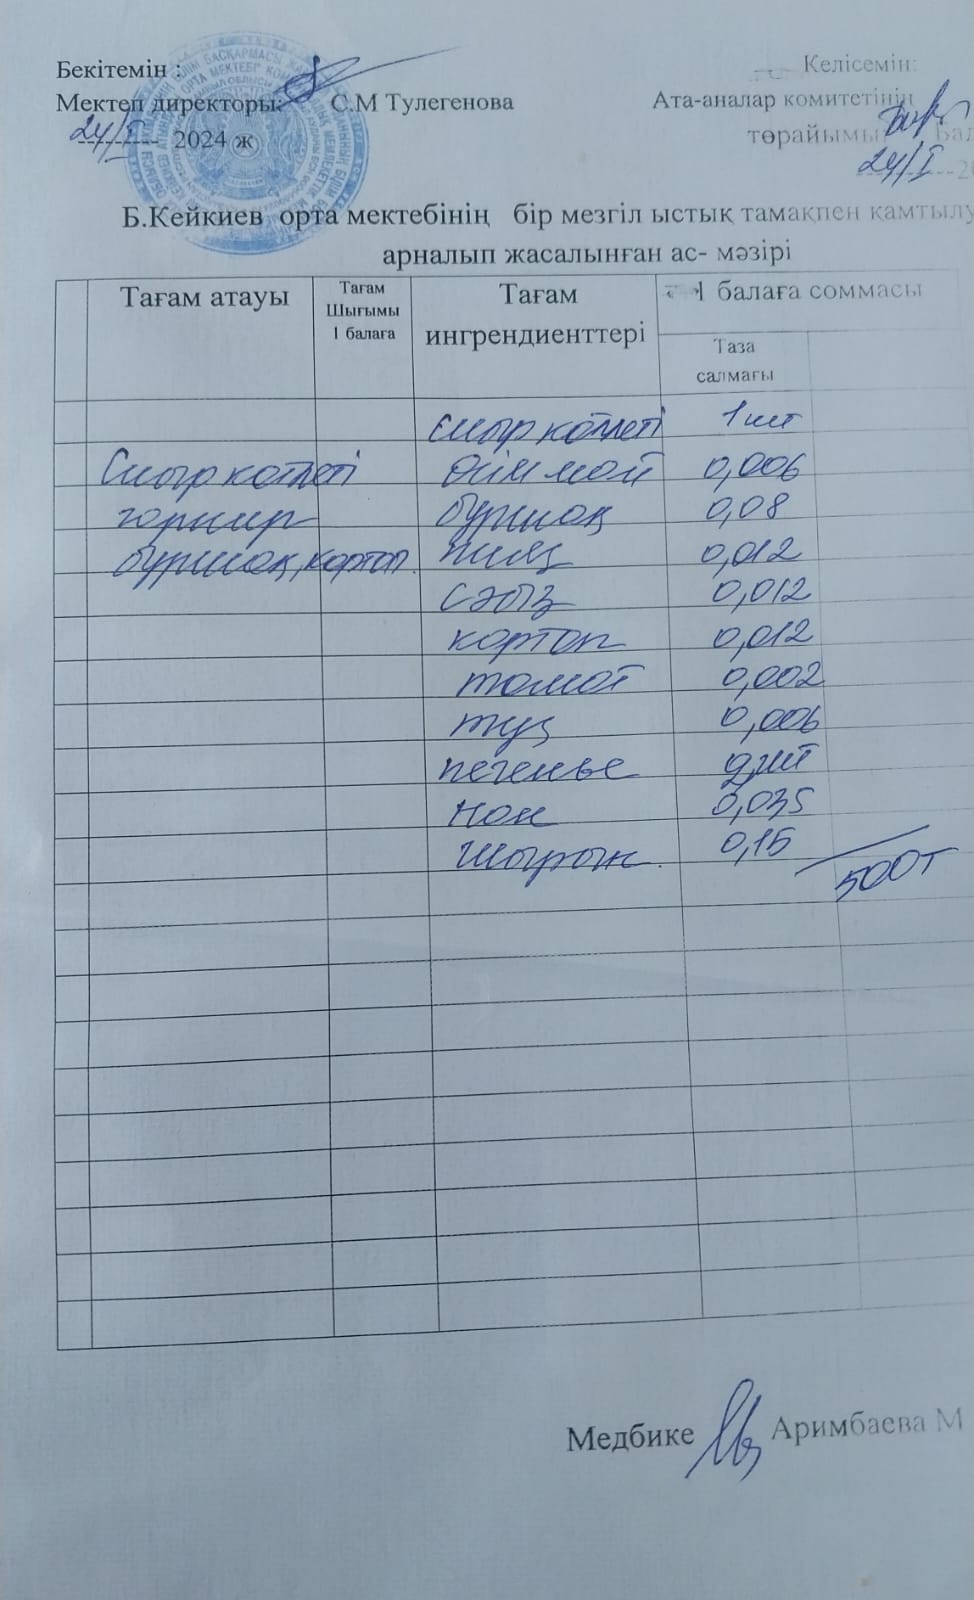 Бекітемін :
Келісемін:
Мектеп директоры: С.М Тулегенова
Ата-аналар комитетінің
24/I 2024 ж
төрайымы Бал
24/I 20
Б.Кейкиев орта мектебінің бір мезгіл ыстық тамақпен қамтылу
арналып жасалынған ас- мәзірі
Тағам атауы
Тағам Шығымы 1 балаға
Тағам ингрендиенттері
1 балаға соммасы
Таза салмағы
Сиыр котлеті 1 шт
Сиыр котлеті Өсім май 0,006
гарнир бұршақ 0,08
бұршақ, картоп. пияз 0,012
сәбіз 0,012
картоп 0,012
томат 0,002
тұз 0,006
печенье 2 шт
нан 0,035
Шырын. 0,15
500т
Медбике Аримбаева М